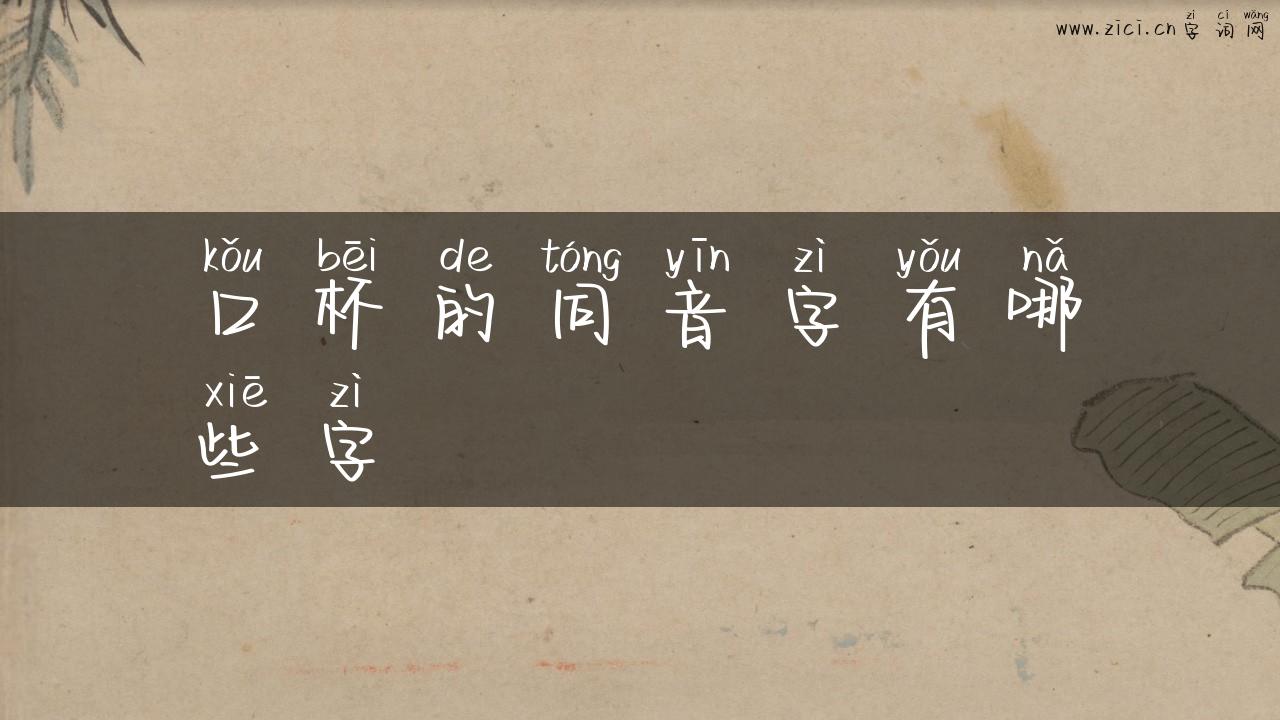 zì cí wǎng
www.zici.cn 字 词 网
kǒu bēi de tóng yīn zì yǒu nǎ
口 杯 的 同 音 字 有 哪
xiē zì
些 字